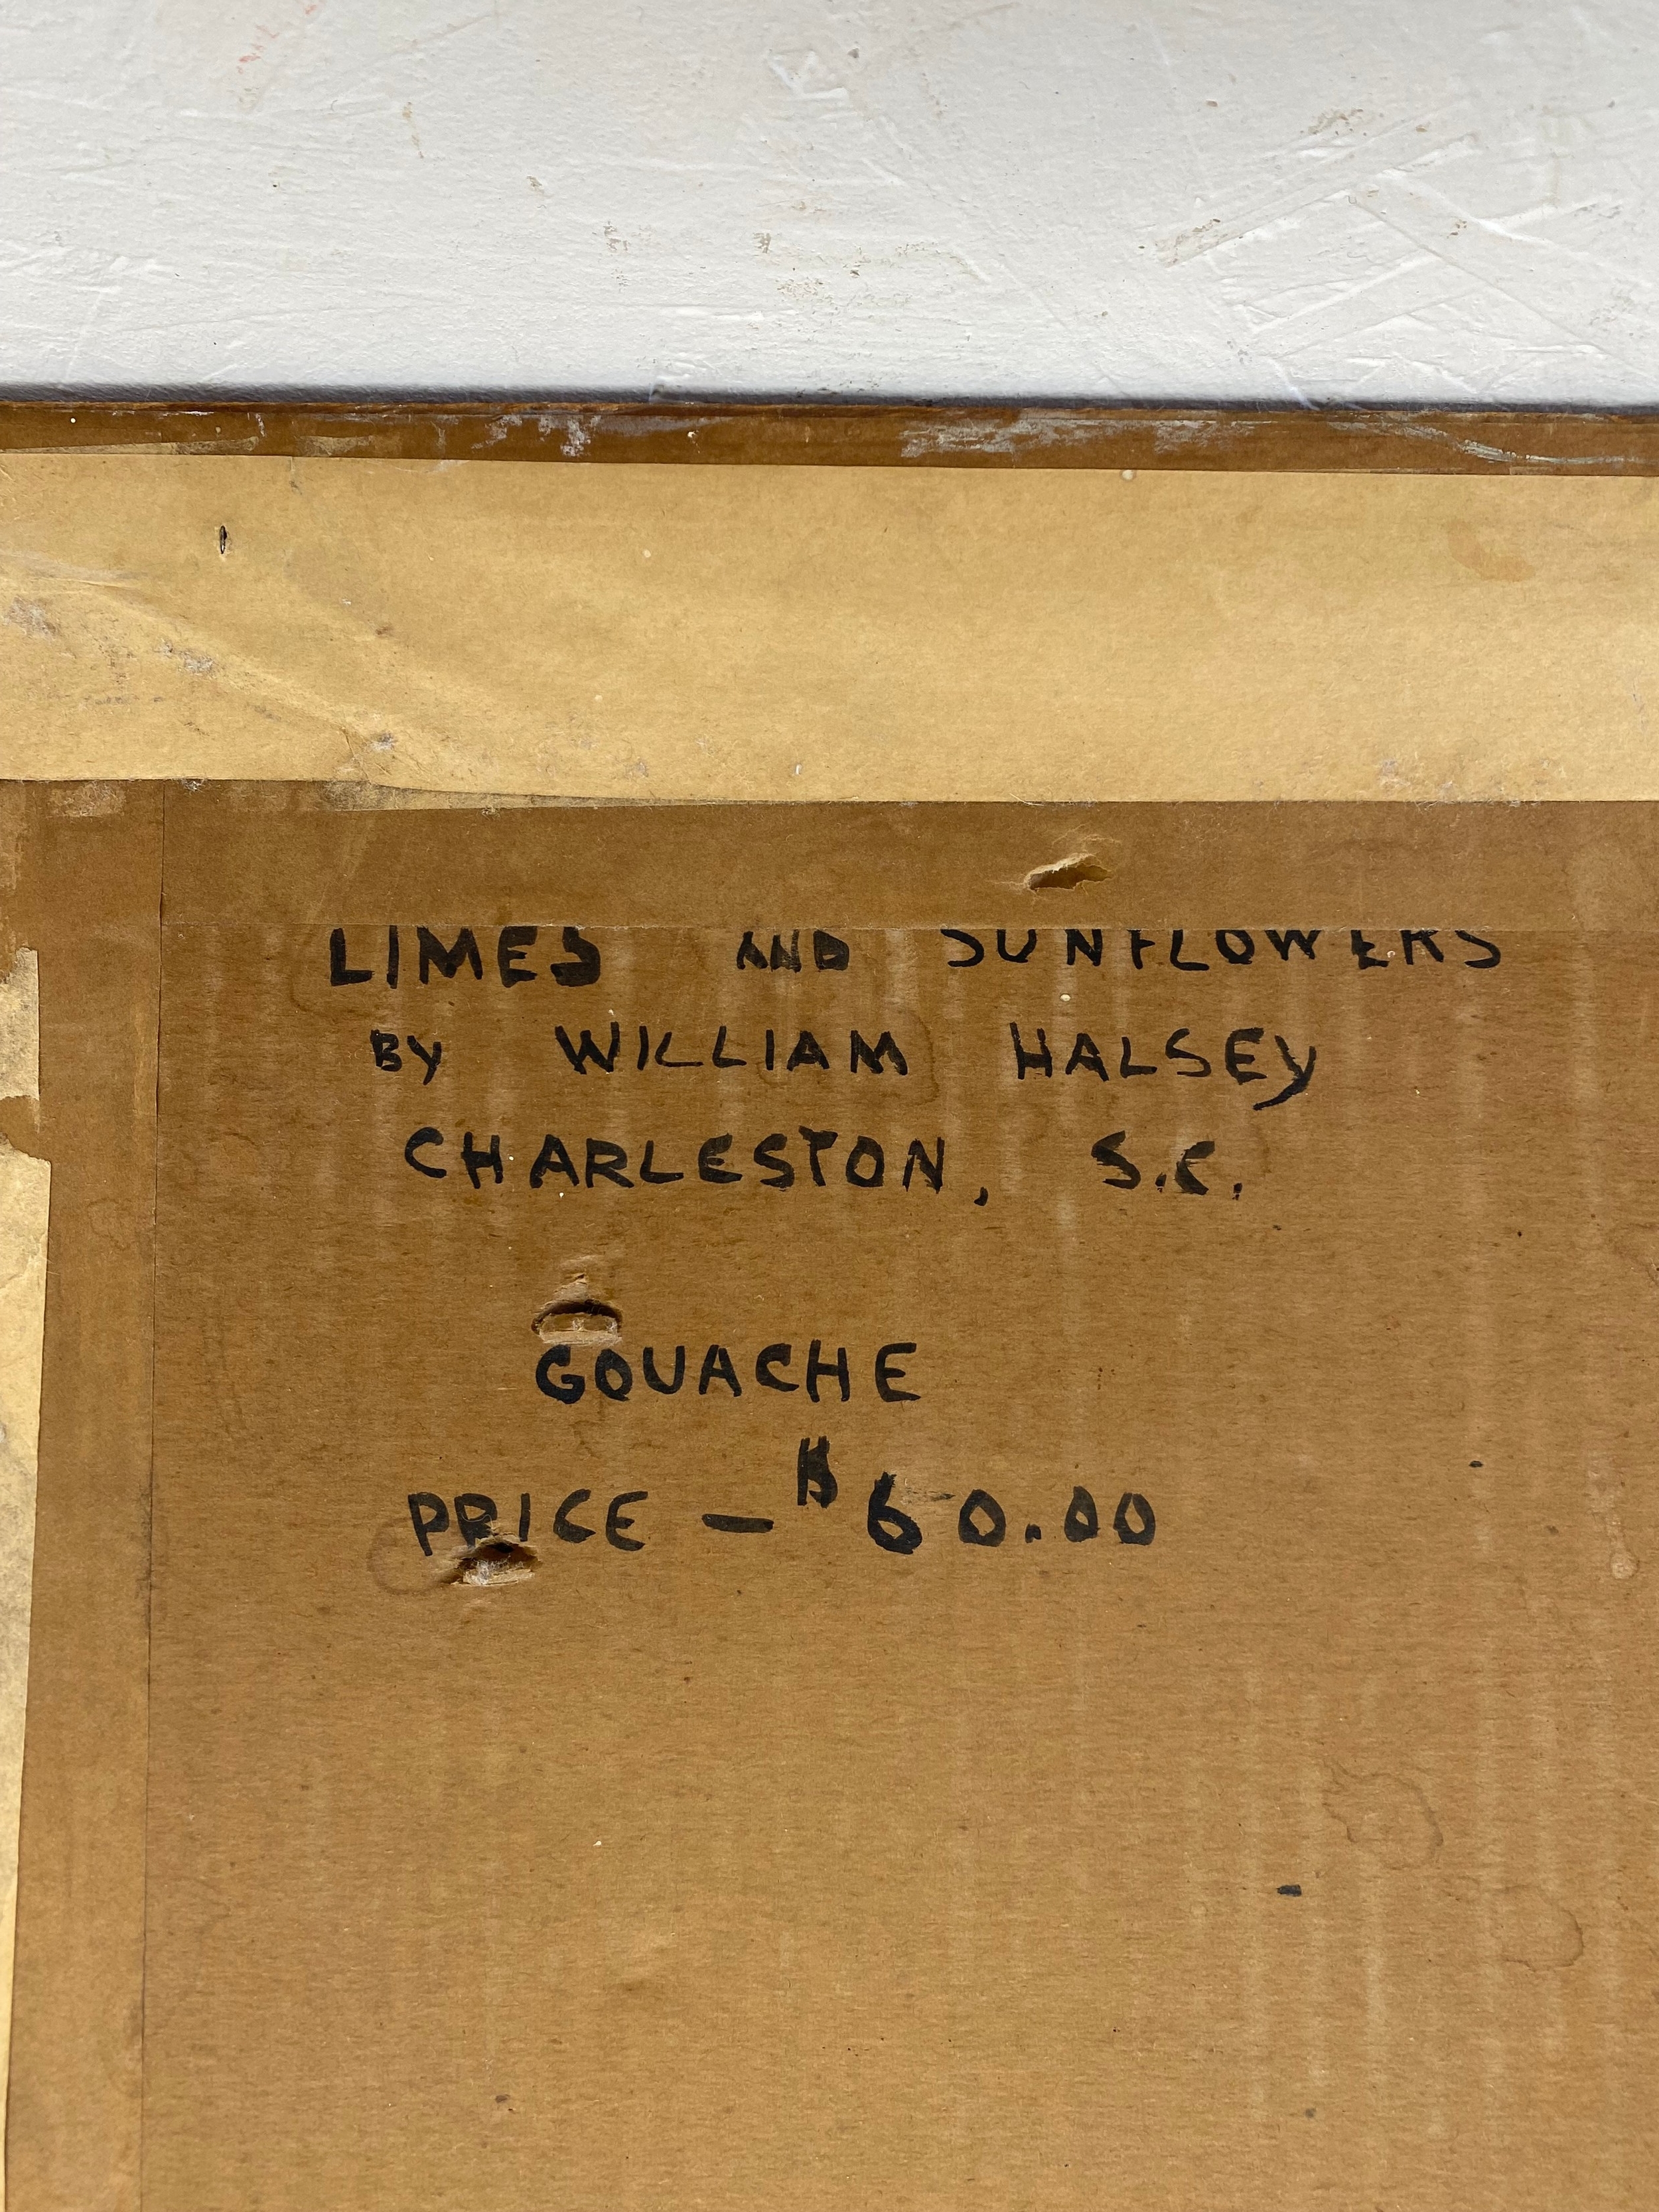 LIMES AND SUNFLOWERS
BY WILLIAM HALSEY
CHARLESTON, S.C.
GOUACHE
PRICE — $60.00